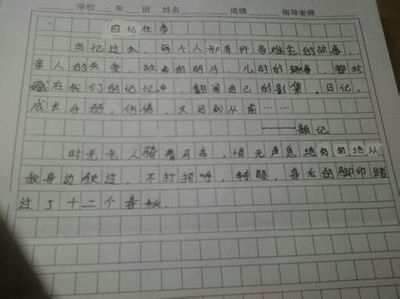 学校 年 班 姓名 成绩 指导老师
回忆往事
回忆过去，每个人都有许多难忘的故事，
亲人的关爱，故乡的明月，儿时的趣事，都珍
藏在我们的记忆中，翻阅自己的影集，日记，
成长手册，仿佛，又回到从前……
——题记
时光老人骑着马车，悄无声息地匆匆地从
我身边驶过，不打招呼，转眼，身后的脚印绕
过了十二个春秋